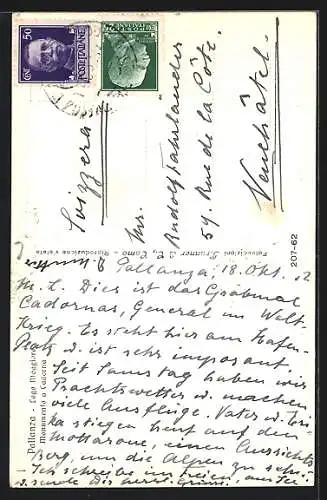 50
Svizzera
Mr.
Rudolf Fahrländer
59, Rue de la Côte
Neuchâtel
Fotoedizioni Brunner & C., Como - Riproduzione vietata
207-62
Pallanza - Lago Maggiore
Monumento a Cadorna
Pallanza, 18. Okt.
M. L. Dies ist das Grabmal
Cadornas, General im Welt-
Krieg. Es steht hier am Hafen-
Platz u. ist sehr imposant.
Seit Samstag haben wir
Prachtswetter u. machen
viele Ausflüge. Vater u.
stiegen heut auf den
Mottarone, einen Aussichts-
Berg, um die Alpen zu sehen.
Ich schreibe im Freien, am See
u. sende Dir herzl. Grüsse.